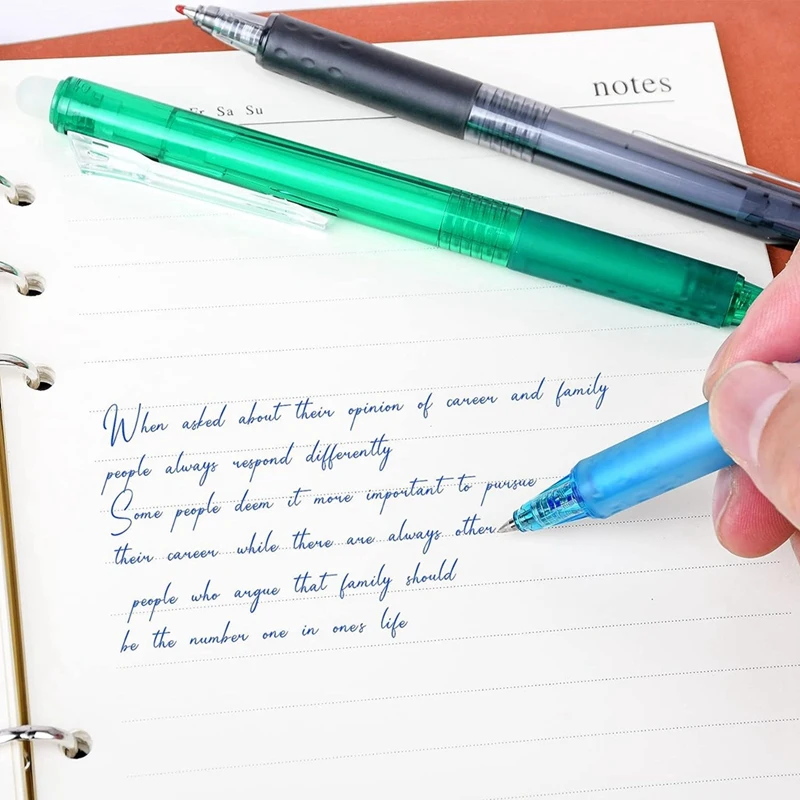 notes
Fr Sa Su
When asked about their opinion of career and family
people always respond differently
Some people deem it more important to pursue
their career while there are always other
people who argue that family should
be the number one in ones life